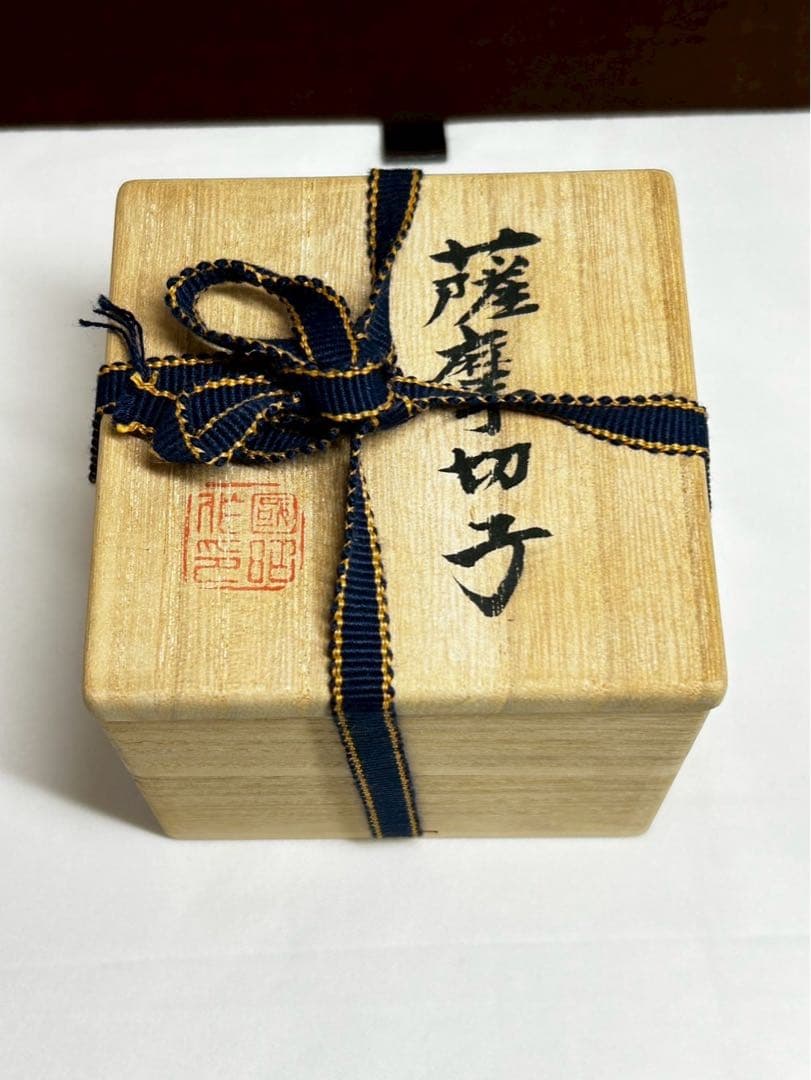 薩摩切子